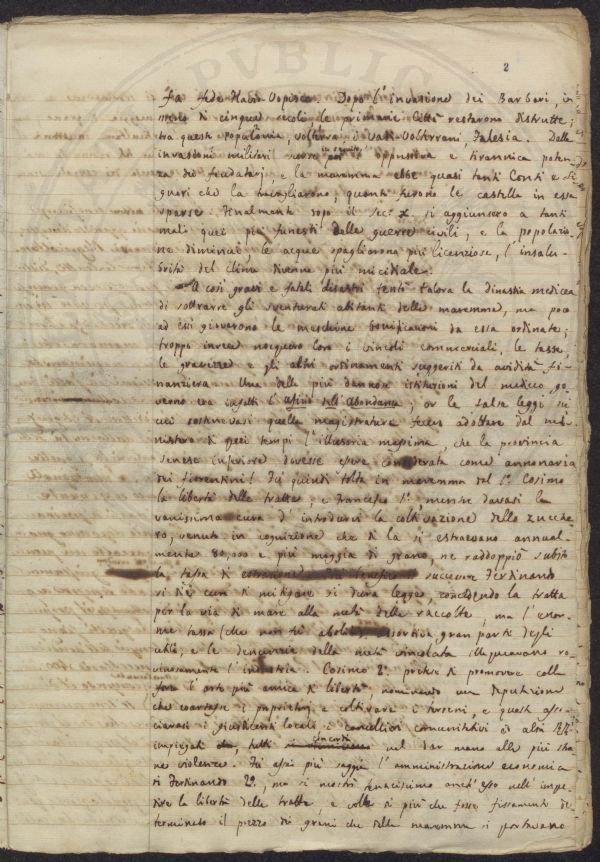 PUBLIC
2
fa fede Flavio Vopisco. Dopo l'invasione dei Barbari, in
meno di cinque secoli le primarie Città restarono distrutte;
tra queste Populonia, Volterra, i Vadi Volterrani, Falesia. Dalle
invasioni militari nacque in seguito l'oppressiva e tirannica poten
za dei feudatarj, e la maremma ebbe quasi tanti Conti e Si
gnori che la travagliarono, quante furono le castella in essa
sparse. Finalmente dopo il sec. X si aggiunsero a tanti
mali quei più funesti delle guerre civili, e la popolazio
ne diminuì, le acque spagliarono più licenziose, l'insalu
brità del clima divenne più micidiale.
A così gravi e fatali disastri tentò talora la dinastia medicea
di sottrarre gli sventurati abitanti della maremma, ma poco
ad essi giovarono le meschine bonificazioni da essa ordinate;
troppo invece nocquero loro i vincoli commerciali, le tasse,
le gravezze e gli altri ordinamenti suggeriti da avidità fi
nanziera. Una delle più dannose istituzioni del mediceo go
verno era infatti l'Ufizio dell'Abondanza; or le false leggi su
cui sostenevasi quella magistratura fecero adottare dal mi
nistero di quei tempi l'illusoria massima, che la provincia
senese inferiore dovesse essere considerata come annonaria
dei fiorentini! Fu quindi tolta in maremma dal C. Cosimo
la libertà delle tratte, e Francesco 1.º, mentre davasi la
vanissima cura d'introdurvi la coltivazione dello zucche
ro, venuto in cognizione che di là si estraevano annual
mente 80,000 e più moggia di grano, ne raddoppiò subito
la tassa di successore Ferdinando
si diè cura di mitigare sì dura legge, concedendo la tratta
per la via di mare alla metà delle raccolte, ma l'enor
me tassa (che non fu abolita) assorbiva gran parte degli
utili, e le denunzie della metà vincolata illaqueavano ro
vinosamente l'industria. Cosimo 2.º pretese di promuovere colla
forza l'arte più amica di libertà, nominando una Deputazione
che coartasse i proprietarj a coltivare i terreni, e questa asso
ciavasi i giusdicenti locali, i cancellieri comunitativi ed altri RR.
impiegati, tutti concordi nel dar mano alle più stra
ne violenze. Fu assai più saggia l'amministrazione economica
di Ferdinando 2.º, ma si mostrò tenacissimo anch'esso nell'impe
dire la libertà delle tratte, e volle di più che fosse fissamente de
terminato il prezzo dei grani che dalla maremma si portavano